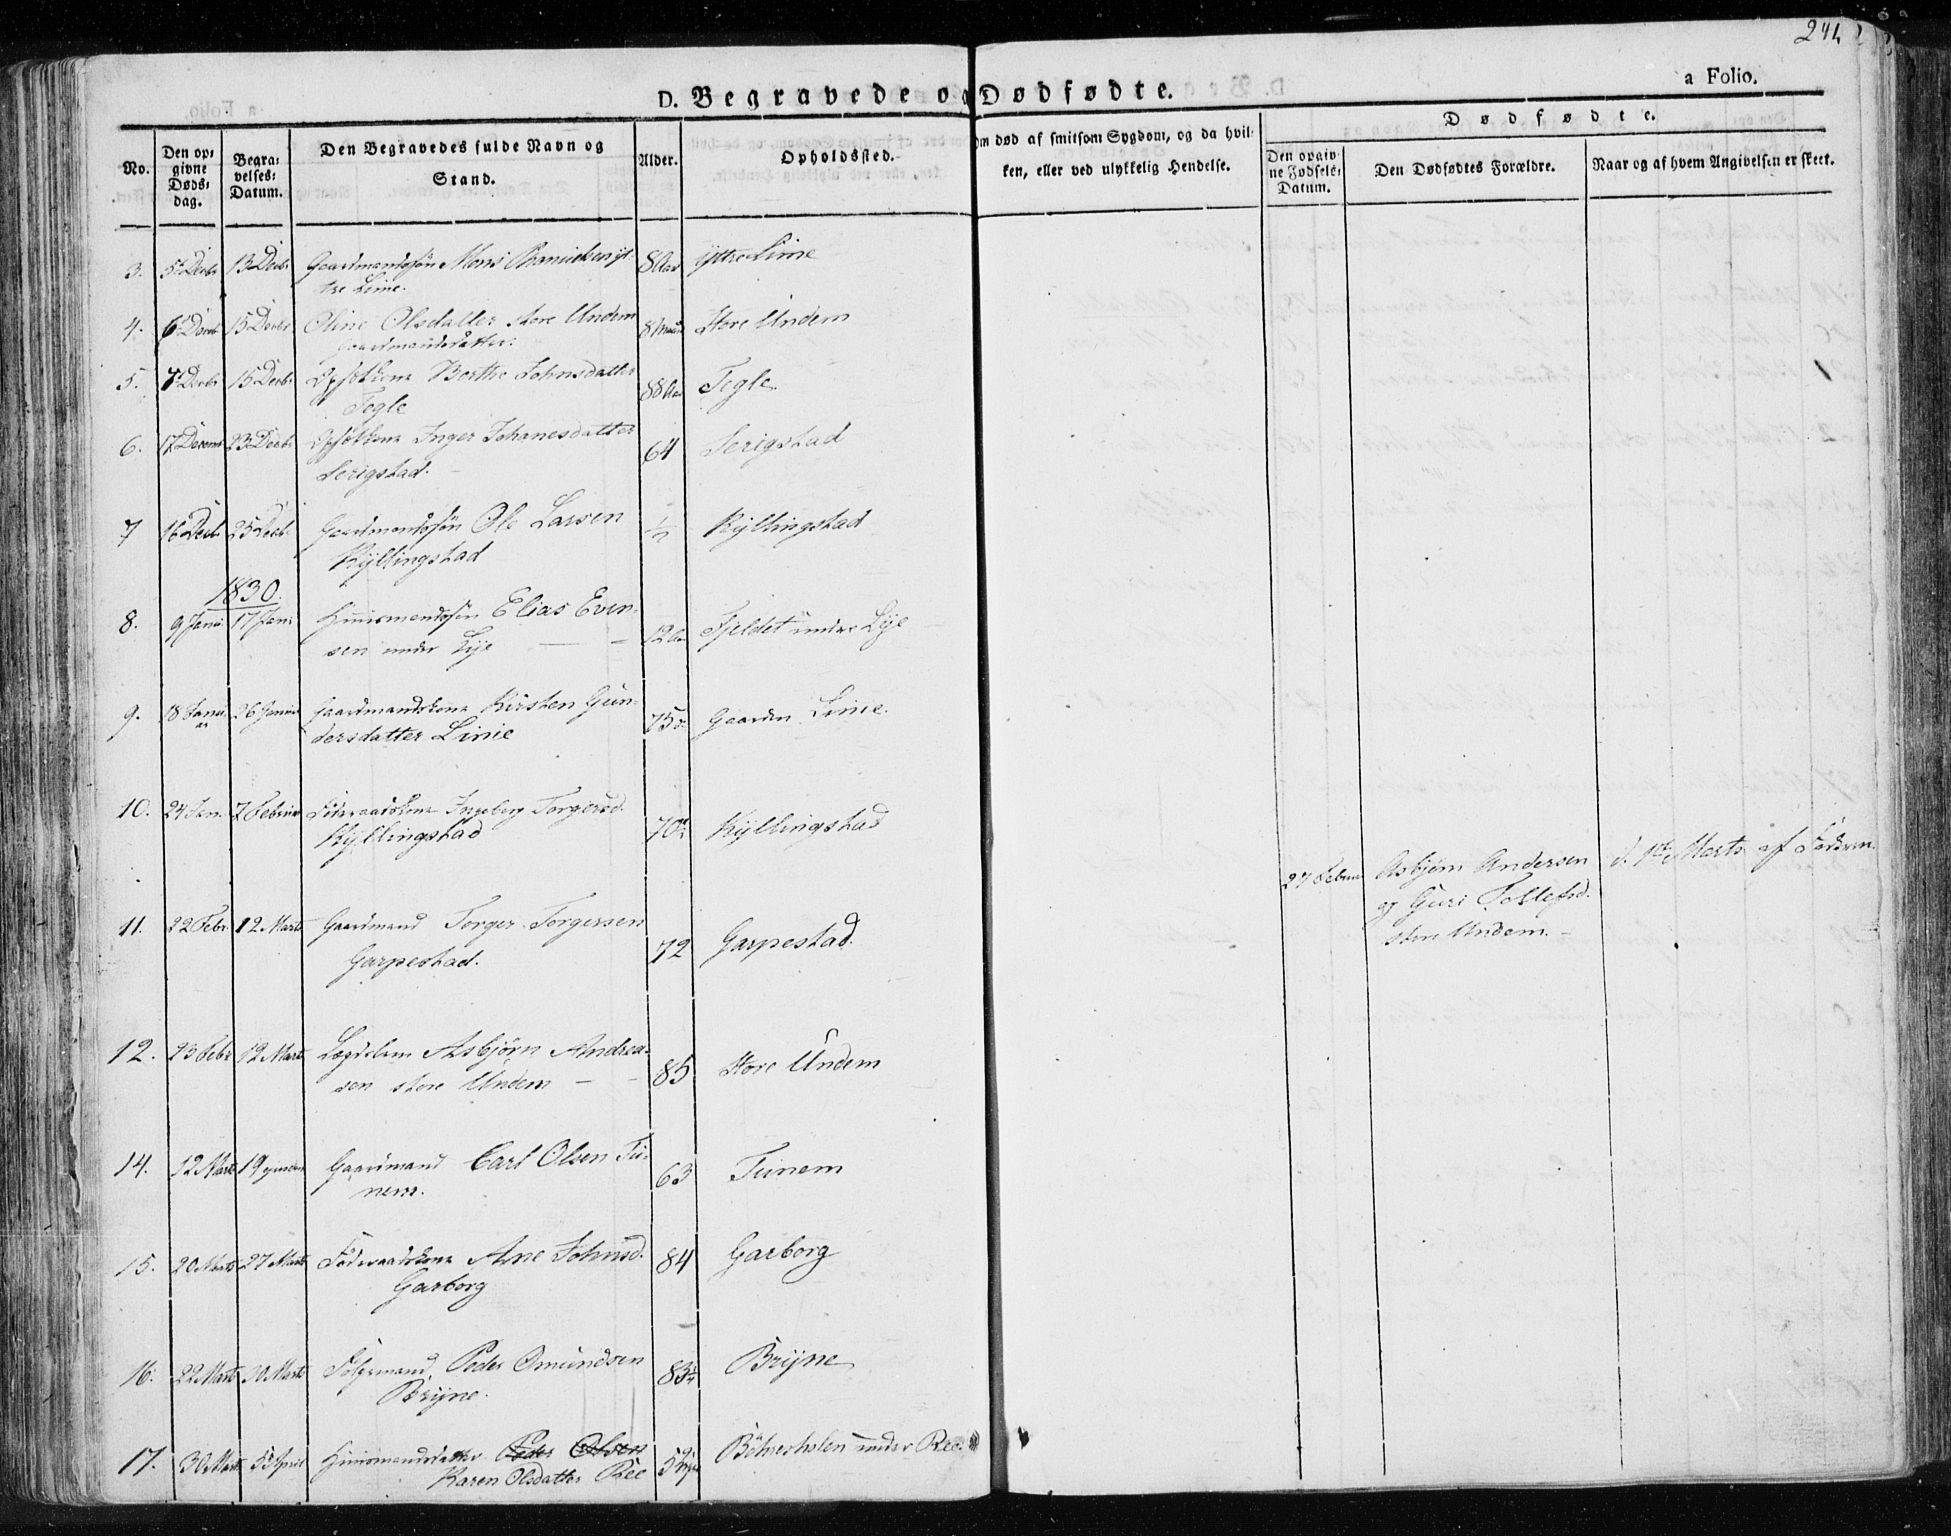 a Folio.
D. Begravede og Dødfødte.
No.
Den opgivne Dødsdag.
Begravelses-Datum.
Den Begravedes fulde Navn og Stand.
Alder.
Opholdssted.
Om død af smitsom Sygdom, og da hvilken, eller ved ulykkelig Hendelse.
Dødfødte.
Den opgivne Fødsels-Datum.
Den Dødfødtes Forældre.
Naar og af hvem Angivelsen er skeet.
3. 5 Decbr 13 Decbr Gaardmandssøn Mons 8 Aar Yttre Linie
tre Linie.
4. 6 Decbr 15 Decbr Oline Olsdatter store Undem 8 Store Undem
Gaardmandsdatter.
5. 7 Decbr 15 Decbr Berthe Johnsdatter 88 Aar Tegle
Tegle
6. 17 Decemb 23 Decbr Inger Johanesdatter 64 Serigstad
Serigstad.
7 16 Decbr 25 Decbr Gaardmandssøn Ole Larsen Kyllingstad
Kyllingstad
1830.
8. 9 Janu 17 Jan Huusmandssøn Elias Even- 12 Fjeldet under Lye
sen under Lye
9. 18 Janu 26 Januar Gaardmandskone Kirsten Gun- 75 Gaarden Linie.
ar
dersdatter Linie
10. 24 Jan. 7 Februar Føderaadskone Ingeborg Torgersd. 70 Kyllingstad
Kyllingstad
27 Februar Asbjørn Andersen d. 1ste Marts af Faderen.
og Guri Tollefsd.
store Undem.
11. 22 Febr. 12 Marts Gaardmand Torger Torgersen 72 Garpestad.
Garpestad.
12. 23 Febr 12 Marts Lægdslem Asbjørn Andrea- 85 Store Undem
sen store Undem
14. 12 Marts 19 Gaardmand Carl Olsen Tu- 63 Tunem
nem.
15. 20 Marts 27 Marts Føderaadskone Ane Johnsd. 84 Garborg
Garborg
16. 22 Marts 30 Marts Peder Omundsen 83 Bryne
Bryne.
17. 30 Marts 5 April Huusmandsdatter Peder Olsen 5 under Ree.
Karen Olsdatter Ree